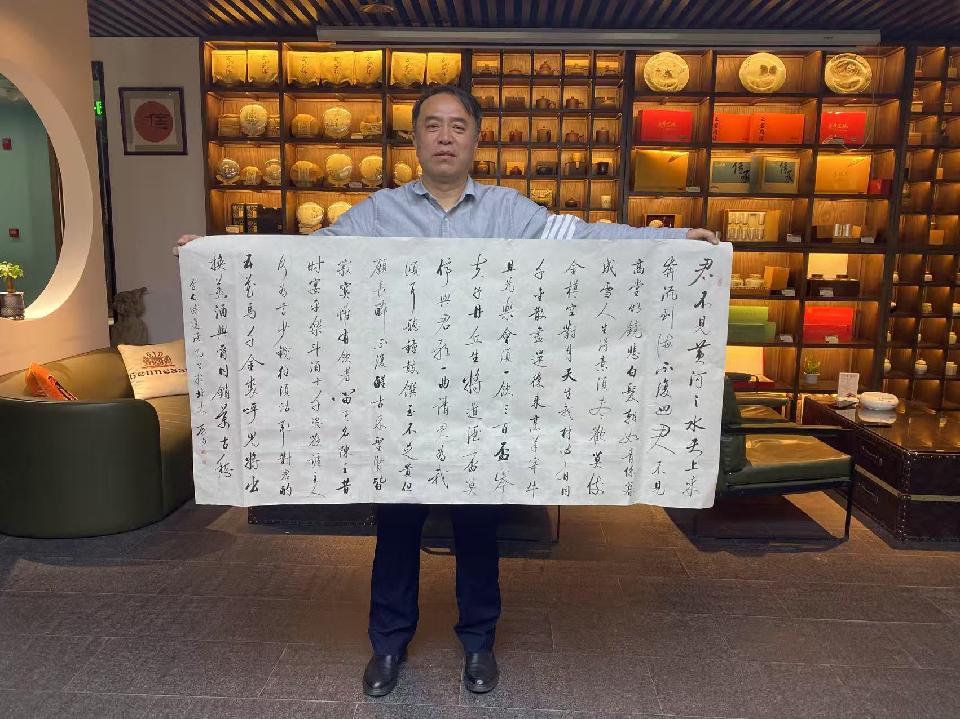 君不見黃河之水天上来
奔流到海不復回君不見
高堂明鏡悲白髮朝如青絲暮
成雪人生得意須尽歡莫使
金樽空對月天生我材必有用
千金散盡還復来烹羊宰牛
且為樂會須一飲三百盃岑
夫子丹丘生將進酒盃莫
停與君歌一曲請君為我
傾耳聽鐘鼓饌玉不足貴但
願長醉不復醒古来聖賢皆
寂寞惟有飲者留其名陳王昔
時宴平樂斗酒十千恣歡謔主人
何為言少錢徑須沽取對君酌
五花馬千金裘呼兒將出
換美酒與爾同銷萬古愁